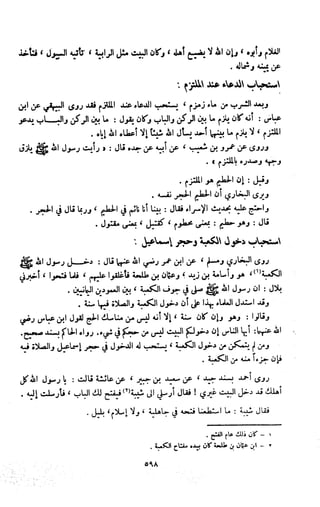 الغلام وأبوه ، وإن الله لا يضيع أهله ، وكان البيت مثل الرابية ، تأتيه السيول ، فتأخذ
عن يمينه وشماله .
استحباب الدعاء عند الملتزم :
وبعد الشرب من ماء زمزم ، يستحب الدعاء عند الملتزم فقد روى البيهقي عن ابن
عباس : أنه كان يلزم ما بين الركن والباب وكان يقول : ما بين الركن والباب يدعى
الملتزم ، لا يلزم ما بينهما أحد يسأل الله شيئاً إلا أعطاه الله إياه .
وروى عن عمرو بن شعيب ، عن أبيه عن جده قال : « رأيت رسول الله ﷺ يلزق
وجهه وصدره بالملتزم » .
وقيل : إن الحطيم هو الملتزم .
ويرى البخاري أن الحطيم الحجر نفسه .
واحتج عليه بحديث الإسراء فقال : بينا أنا نائم في الحطيم ، وربما قال في الحجر .
قال : وهو حطيم : بمعنى محطوم ، كقتيل ، بمعنى مقتول .
استحباب دخول الكعبة وحجر إسماعيل :
روى البخاري ومسلم ، عن ابن عمر رضي الله عنهما قال : دخل رسول الله ﷺ
الكعبة(١) هو وأسامة بن زيد ، وعثمان بن طلحة فأغلقوا عليهم ، فلما فتحوا ، أخبرني
بلال : ان رسول الله ﷺ صلى في جوف الكعبة ، بين العمودين اليمانيين .
وقد استدل العلماء بهذا على أن دخول الكعبة والصلاة فيها سنة .
وقالوا : وهو وإن كان سنة ، إلا أنه ليس من مناسك الحج لقول ابن عباس رضي
الله عنهما: أيها الناس إن دخولكم البيت ليس من حجكم في شيء. رواه الحاكم بسند صحيح.
ومن لم يتمكن من دخول الكعبة ، يستحب له الدخول في حجر إسماعيل والصلاة فيه
فإن جزءاً منه من الكعبة .
روى أحمد بسند جيد ، عن سعيد بن جبير ، عن عائشة قالت : يا رسول الله كل
أهلك قد دخل البيت غيري ! فقال أرسلي الى شيبة(٢) فيفتح لك الباب ، فأرسلت إليه .
فقال شيبة : ما استطعنا فتحه في جاهلية ، ولا إسلام ، بليل .
١ – كان ذلك عام الفتح .
٢ – ابن عثمان بن طلحة كان بيده مفتاح الكعبة .
٥٩٨